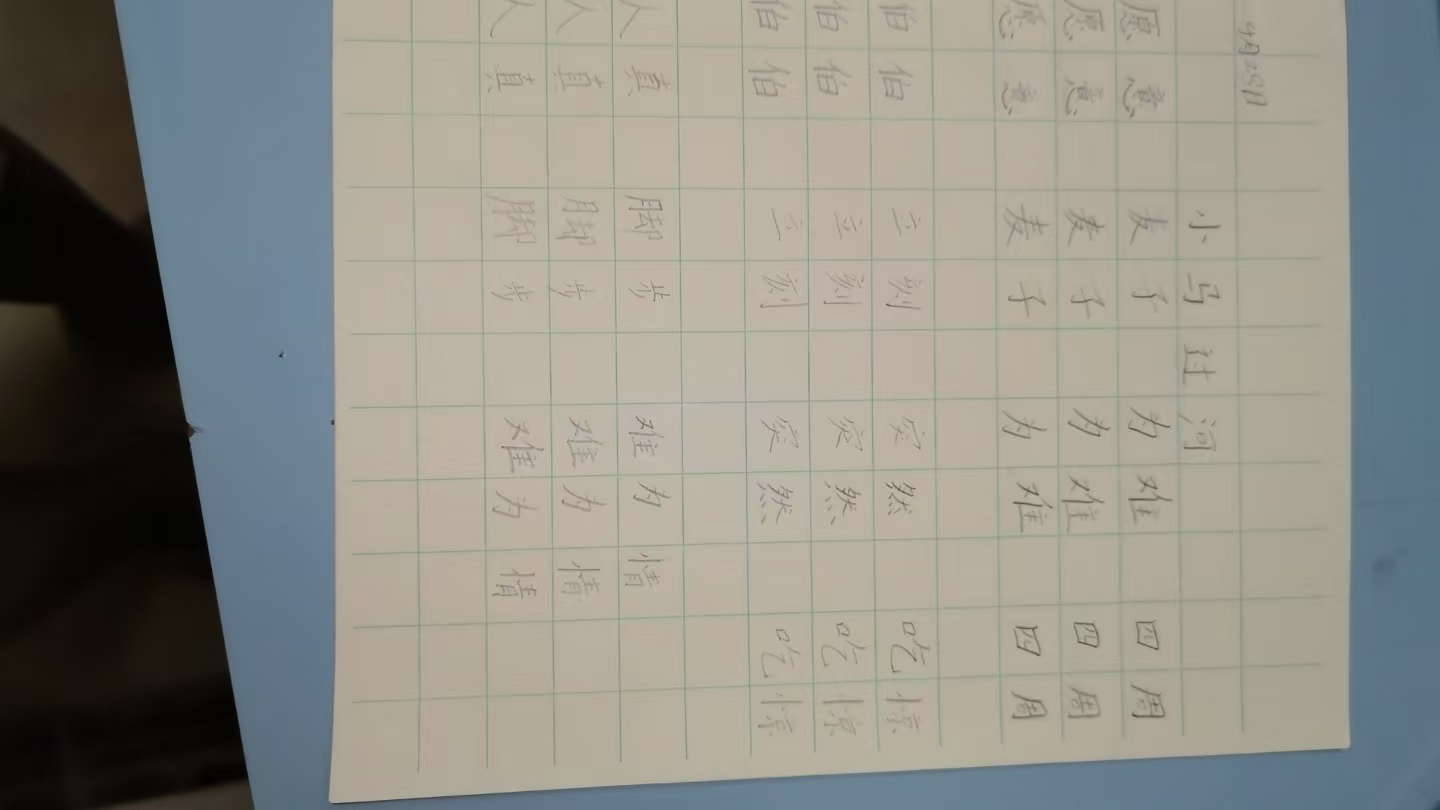 9月28日
小马过河
愿意 麦子 为难 四周
愿意 麦子 为难 四周
愿意 麦子 为难 四周
伯伯 立刻 突然 吃惊
伯伯 立刻 突然 吃惊
伯伯 立刻 突然 吃惊
认真 脚步 难为情
认真 脚步 难为情
认真 脚步 难为情